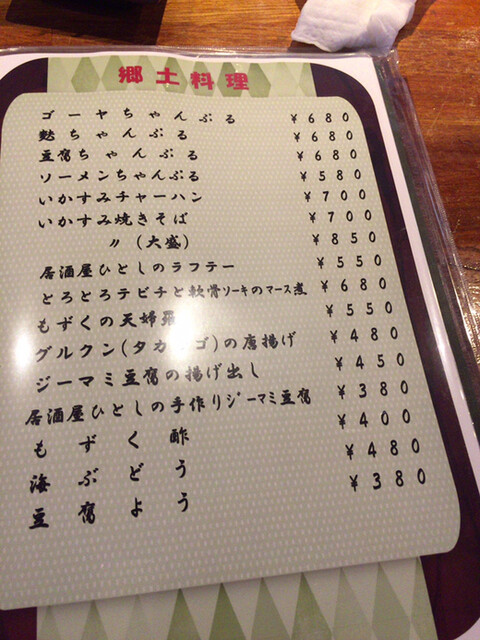 郷土料理
ゴーヤちゃんぷる ¥680
麩ちゃんぷる ¥680
豆腐ちゃんぷる ¥680
ソーメンちゃんぷる ¥580
いかすみチャーハン ¥700
いかすみ焼きそば ¥700
〃(大盛) ¥850
居酒屋ひとしのラフテー ¥550
とろとろテビチと軟骨ソーキのマース煮 ¥680
もずくの天婦羅 ¥550
グルクン(タカサゴ)の唐揚げ ¥480
ジーマミ豆腐の揚げ出し ¥450
居酒屋ひとしの手作りジーマミ豆腐 ¥380
もずく酢 ¥400
海ぶどう ¥480
豆腐よう ¥380